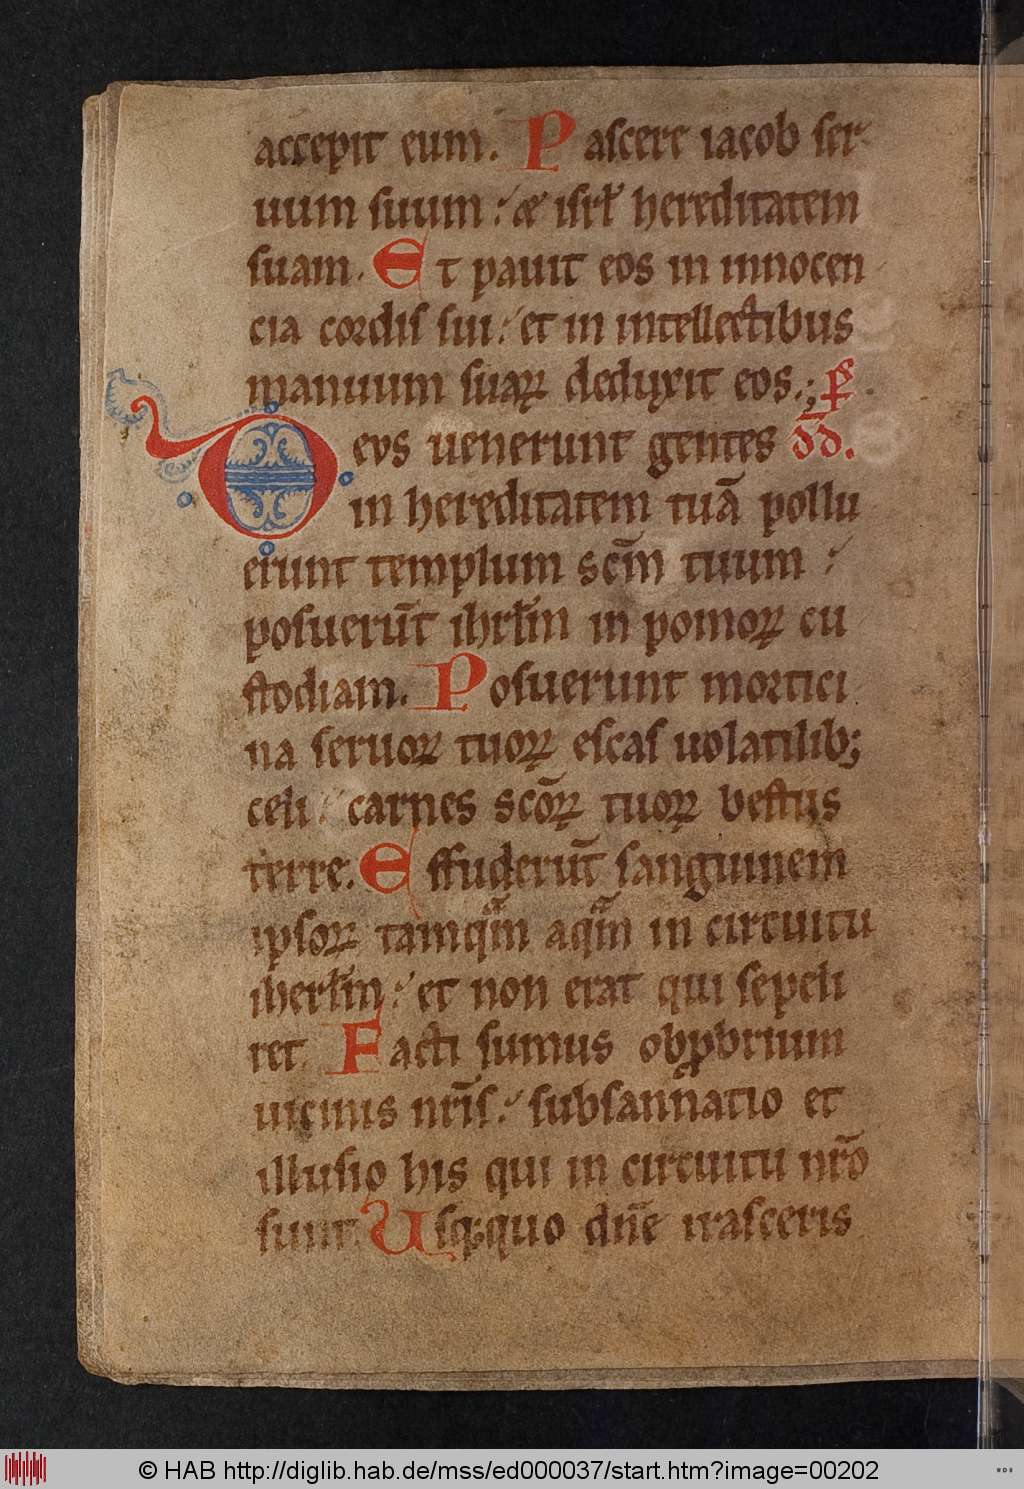 accepit eum. Pascere iacob ser
uum suum : & isrł hereditatem
suam. Et pauit eos in innocen
cia cordis sui : et in intellectibus
manuum suaꝝ deduxit eos.; p̄s
Deus uenerunt gentes dd̄.
in hereditatem tuā pollu
erunt templum scm̄ tuum :
posuerūt ihrłm in pomoꝝ cu
stodiam. Posuerunt mortici
na seruoꝝ tuoꝝ escas uolatilib;
celi : carnes scōꝝ tuoꝝ bestiis
terre. Effuderūt sanguinem
ipsoꝝ tamqᵃm aqᵃm in circuitu
iherłm : et non erat qui sepeli
ret. Facti sumus obꝓbrium
uicinis nr̄is : subsannatio et
illusio his qui in circuitu nr̄o
sunt. Usq;quo dn̄e irasceris
© HAB http://diglib.hab.de/mss/ed000037/start.htm?image=00202